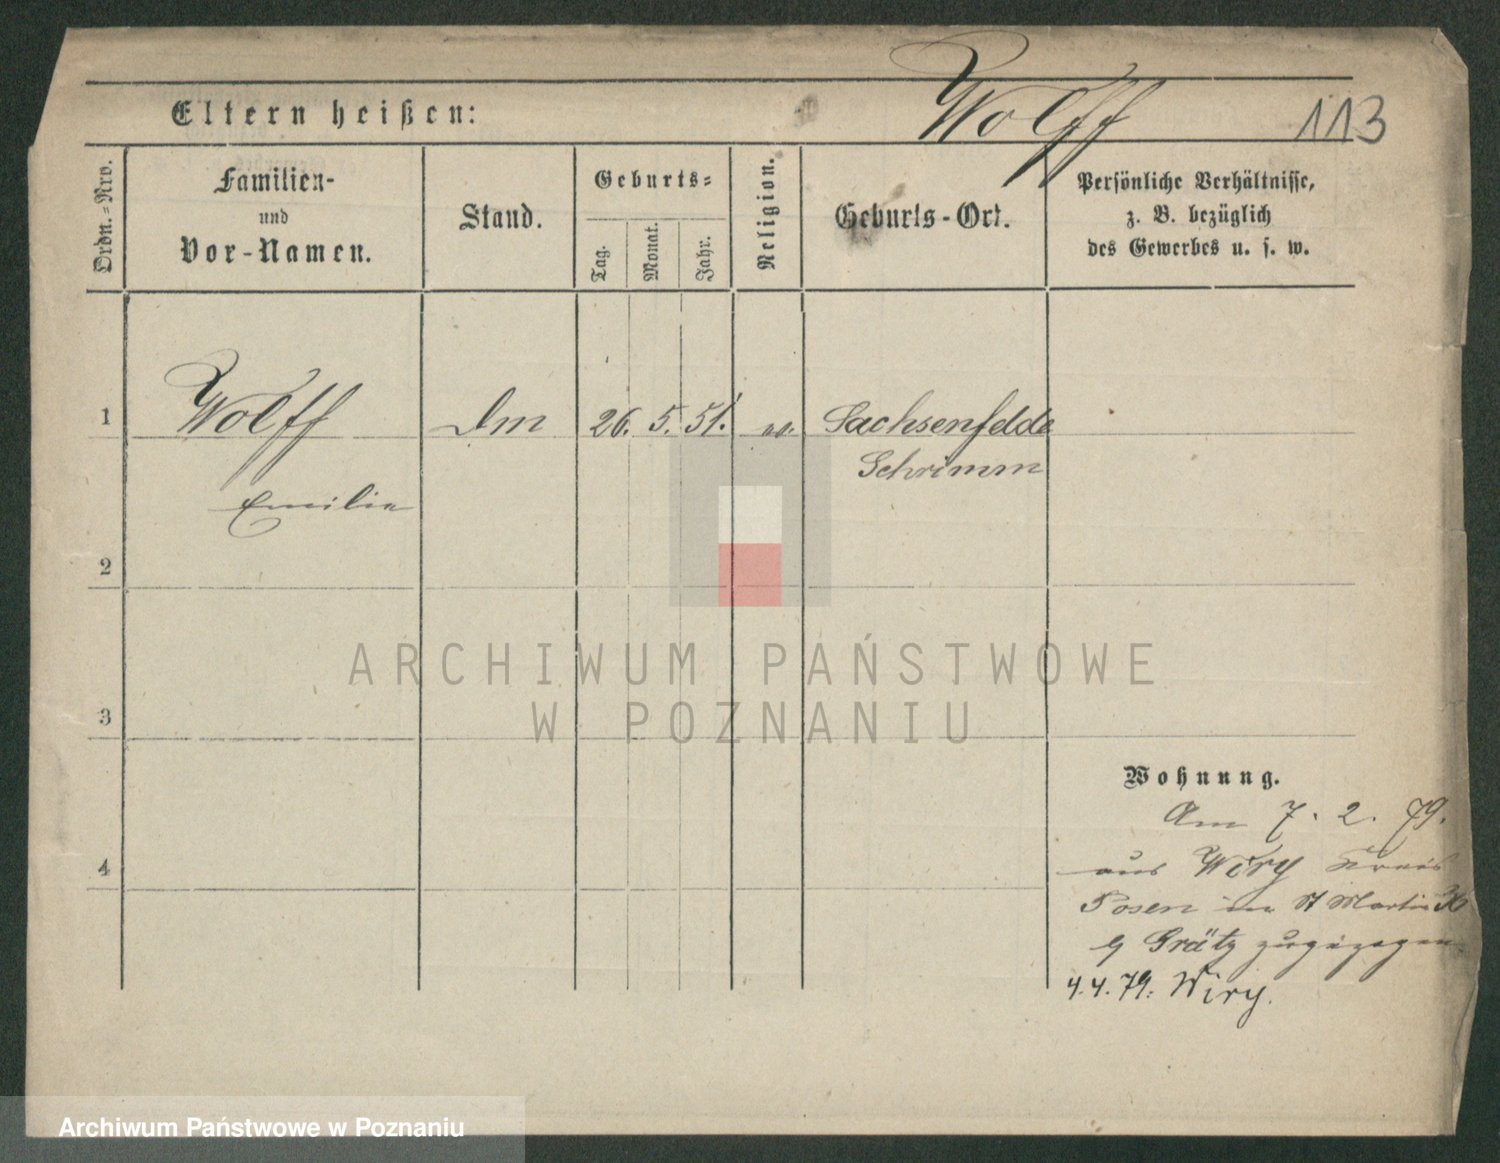 Wolff
113
Eltern heißen:
Ordn.-Nro.
Familien-
und
Vor-Namen.
Stand.
Geburts-
Tag.
Monat.
Jahr.
Religion.
Geburts-Ort.
Persönliche Verhältnisse,
z. B. bezüglich
des Gewerbes u. s. w.
1
Wolff
Dm
26. 5. 51.
Sachsenfelde
Schrimm
Emilie
2
3
4
Wohnung.
Am 7. 2. 79.
aus Wiry Kreis
Posen in St Martin
Grätz zugezogen.
4.4.79. Wiry.
ARCHIWUM PAŃSTWOWE
W POZNANIU
Archiwum Państwowe w Poznaniu